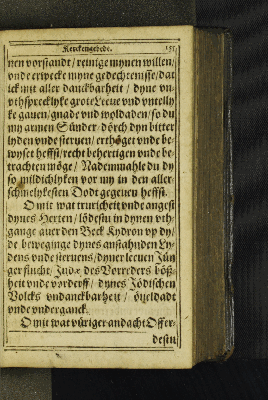 Kerckengebede. 151
nen vorstandt / reinige mynen willen /
vnde erwecke myne gedechtenisse / dat
ick mit aller danckbarheit / dyne vn-
vthspreklyke grote Leeue vnd vntelly
ke gauen / gnade vnd woldaden / so du
my armen Sünder / dörch dyn bitter
lyden vnde steruen / ertöget vnde be-
wyset heffst / recht behertigen vnde be-
trachten möge / Nademmahle du dy
so mildichlyken vor my in den aller-
schmelykesten Dodt gegeuen heffst.
O mit wat truricheit vnde angest
dynes Herten / lödestu in dynen vth-
gange auer den Beck Kydron vp dy /
de beweginge dynes anstahnden Ly-
dens vnde steruens / dyner leeuen Jün
ger flucht / Judæ des Vorreders böß-
heit vnde vorderff / dynes Jödischen
Volcks vndanckbarheit / öueldadt
vnde vnderganck.
O mit wat vüriger andacht Offer-
destu